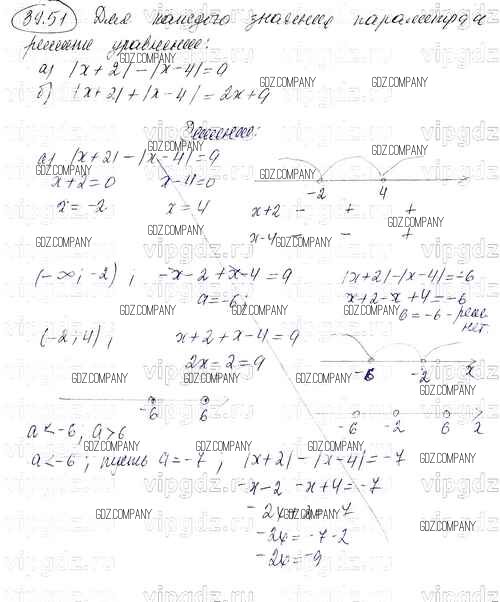 34.51 Для каждого значения параметра a
решение уравнение:
а) |x+2|-|x-4|=a
б) |x+2|+|x-4|=2x+a
Решение:
а) |x+2|-|x-4|=a
x+2=0 x-4=0
x=-2 x=4
-2 4
x+2 - + +
x-4 - - +
(-∞; -2), -x-2+x-4=a
a=-6;
|x+2|-|x-4|=-6
x+2-x+4=-6
6=-6 - реше.
нет.
(-2; 4), x+2+x-4=a
2x-2=a
-6 -2 x
-6 6
-6 -2 6 x
a<-6, a>6
a<-6; пусть a=-7, |x+2|-|x-4|=-7
-x-2 -x+4=-7
-2x+2=-7
-2x=-7-2
-2x=-9
GDZ.COMPANY
vipgdz.ru